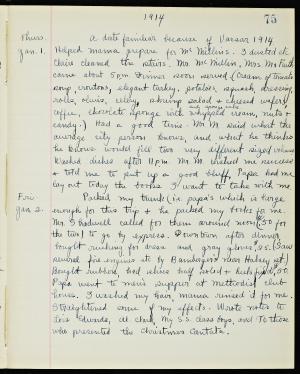 1914
75
Thurs.
Jan. 1.
A date familiar because of Vassar 1914
Helped mama prepare for McMillins. I dusted etc.
Claire cleaned the
came about 5 p.m. Dinner soon served (Cream of Tomato
soup, croutons, elegant turkey, potatoes, squash, dressing,
rolls, olives, celery, shrimp salad & cheesed wafers,
coffee, chocolate sponge with whipped cream, nuts &
candy). Had a good time. Mr. M. said what the
average city person knows and what he thinks
he knows would fill two very different sized volumes
Washed dishes after 11 p.m. Mr. M. wished me success
& told me to put up a good bluff. Papa had me
lay out today the books I want to take with me.
Fri.
Jan. 2.
Packed my trunk (i.e. papa's which is large
enough for this trip & he packed my books for me.
Mr. Shadwell called for them around noon, .50 for
the two to go by express. Downtown after dinner
bought ruching for dress and gray gloves, .25. (Saw
several fire engines etc by Bambergers near Halsey st.)
Bought rubbers, had shoes half soled & heels fixed, .50
Papa went to men's supper at Methodist club
house. I washed my hair, mama rinsed it for me.
Straightened some of my effects. Wrote notes to
Lois Edwards, al. Clark, my S.S. class boys, and to those
who presented the Christmas Cantata.